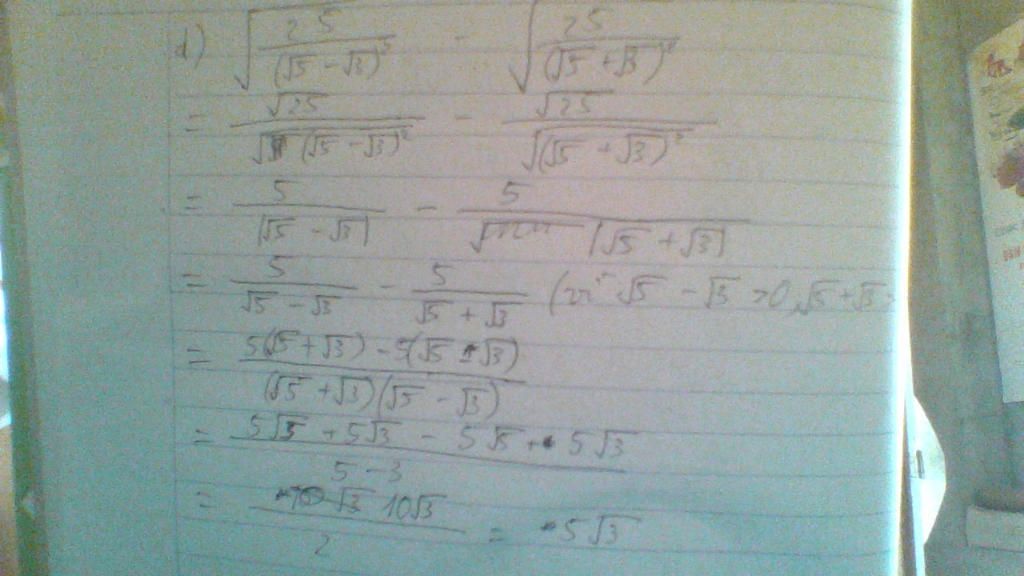 d) √(25/(√5 - √3)²) - √(25/(√5 + √3)²)
= √25/√(√5 - √3)² - √25/√(√5 + √3)²
= 5/|√5 - √3| - 5/|√5 + √3|
= 5/(√5 - √3) - 5/(√5 + √3) (vì √5 - √3 > 0, √5 + √3 >
= (5(√5 + √3) - 5(√5 - √3))/((√5 + √3)(√5 - √3))
= (5√5 + 5√3 - 5√5 + 5√3)/(5 - 3)
= 10√3/2 = 5√3